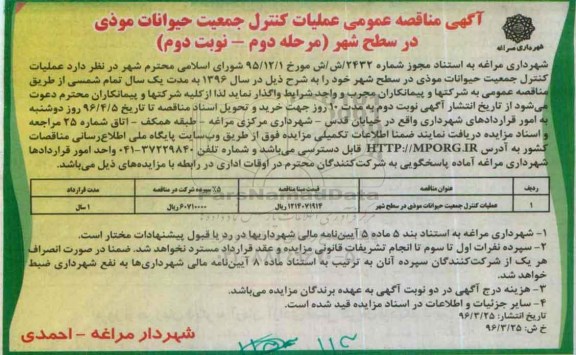 آگهی مناقصه عمومی عملیات کنترل جمعیت حیوانات موذی
در سطح شهر (مرحله دوم – نوبت دوم)
شهرداری مراغه
شهرداری مراغه به استناد مجوز شماره ۲۴۳۲/ش/ش مورخ ۹۵/۱۲/۱ شورای اسلامی محترم شهر در نظر دارد عملیات
کنترل جمعیت حیوانات موذی در سطح شهر خود را به شرح ذیل در سال ۱۳۹۶ به مدت یک سال تمام شمسی از طریق
مناقصه عمومی به شرکتها و پیمانکاران مجرب و واجد شرایط واگذار نماید لذا از کلیه شرکتها و پیمانکاران محترم دعوت
می‌شود از تاریخ انتشار آگهی نوبت دوم به مدت ۱۰ روز جهت خرید و تحویل اسناد مناقصه تا تاریخ ۹۶/۴/۵ روز دوشنبه
به امور قراردادهای شهرداری واقع در خیابان قدس – شهرداری مرکزی مراغه – طبقه همکف – اتاق شماره ۲۵ مراجعه
و اسناد مزایده دریافت نمایند ضمنا اطلاعات تکمیلی مزایده فوق از طریق وب‌سایت پایگاه ملی اطلاع‌رسانی مناقصات
کشور به آدرس HTTP://MPORG.IR قابل دسترسی می‌باشد و شماره تلفن ۳۷۲۲۹۸۴۰-۰۴۱ واحد امور قراردادها
شهرداری مراغه آماده پاسخگویی به شرکت‌کنندگان محترم در اوقات اداری در رابطه با مزایده‌های ذیل می‌باشد.
ردیف عنوان مناقصه قیمت مبنا مناقصه ۵٪ سپرده شرکت در مناقصه مدت قرارداد
۱ عملیات کنترل جمعیت حیوانات موذی در سطح شهر ۱۲۱۴۰۷۱۹۱۴ ریال ۶۰۷۱۰۰۰۰ ریال ۱ سال
۱- شهرداری مراغه به استناد بند ۵ ماده ۵ آیین‌نامه مالی شهرداریها در رد یا قبول پیشنهادات مختار است.
۲- سپرده نفرات اول تا سوم تا انجام تشریفات قانونی مزایده و عقد قرارداد مسترد نخواهد شد. ضمنا در صورت انصراف
هر یک از شرکت‌کنندگان سپرده آنان به ترتیب به استناد ماده ۸ آیین‌نامه مالی شهرداری‌ها به نفع شهرداری ضبط
خواهد شد.
۳- هزینه درج آگهی در دو نوبت آگهی به عهده برندگان مزایده می‌باشد.
۴- سایر جزئیات و اطلاعات در اسناد مزایده قید شده است.
تاریخ انتشار: ۹۶/۳/۲۵
خ ش: ۹۶/۳/۲۵
شهردار مراغه – احمدی